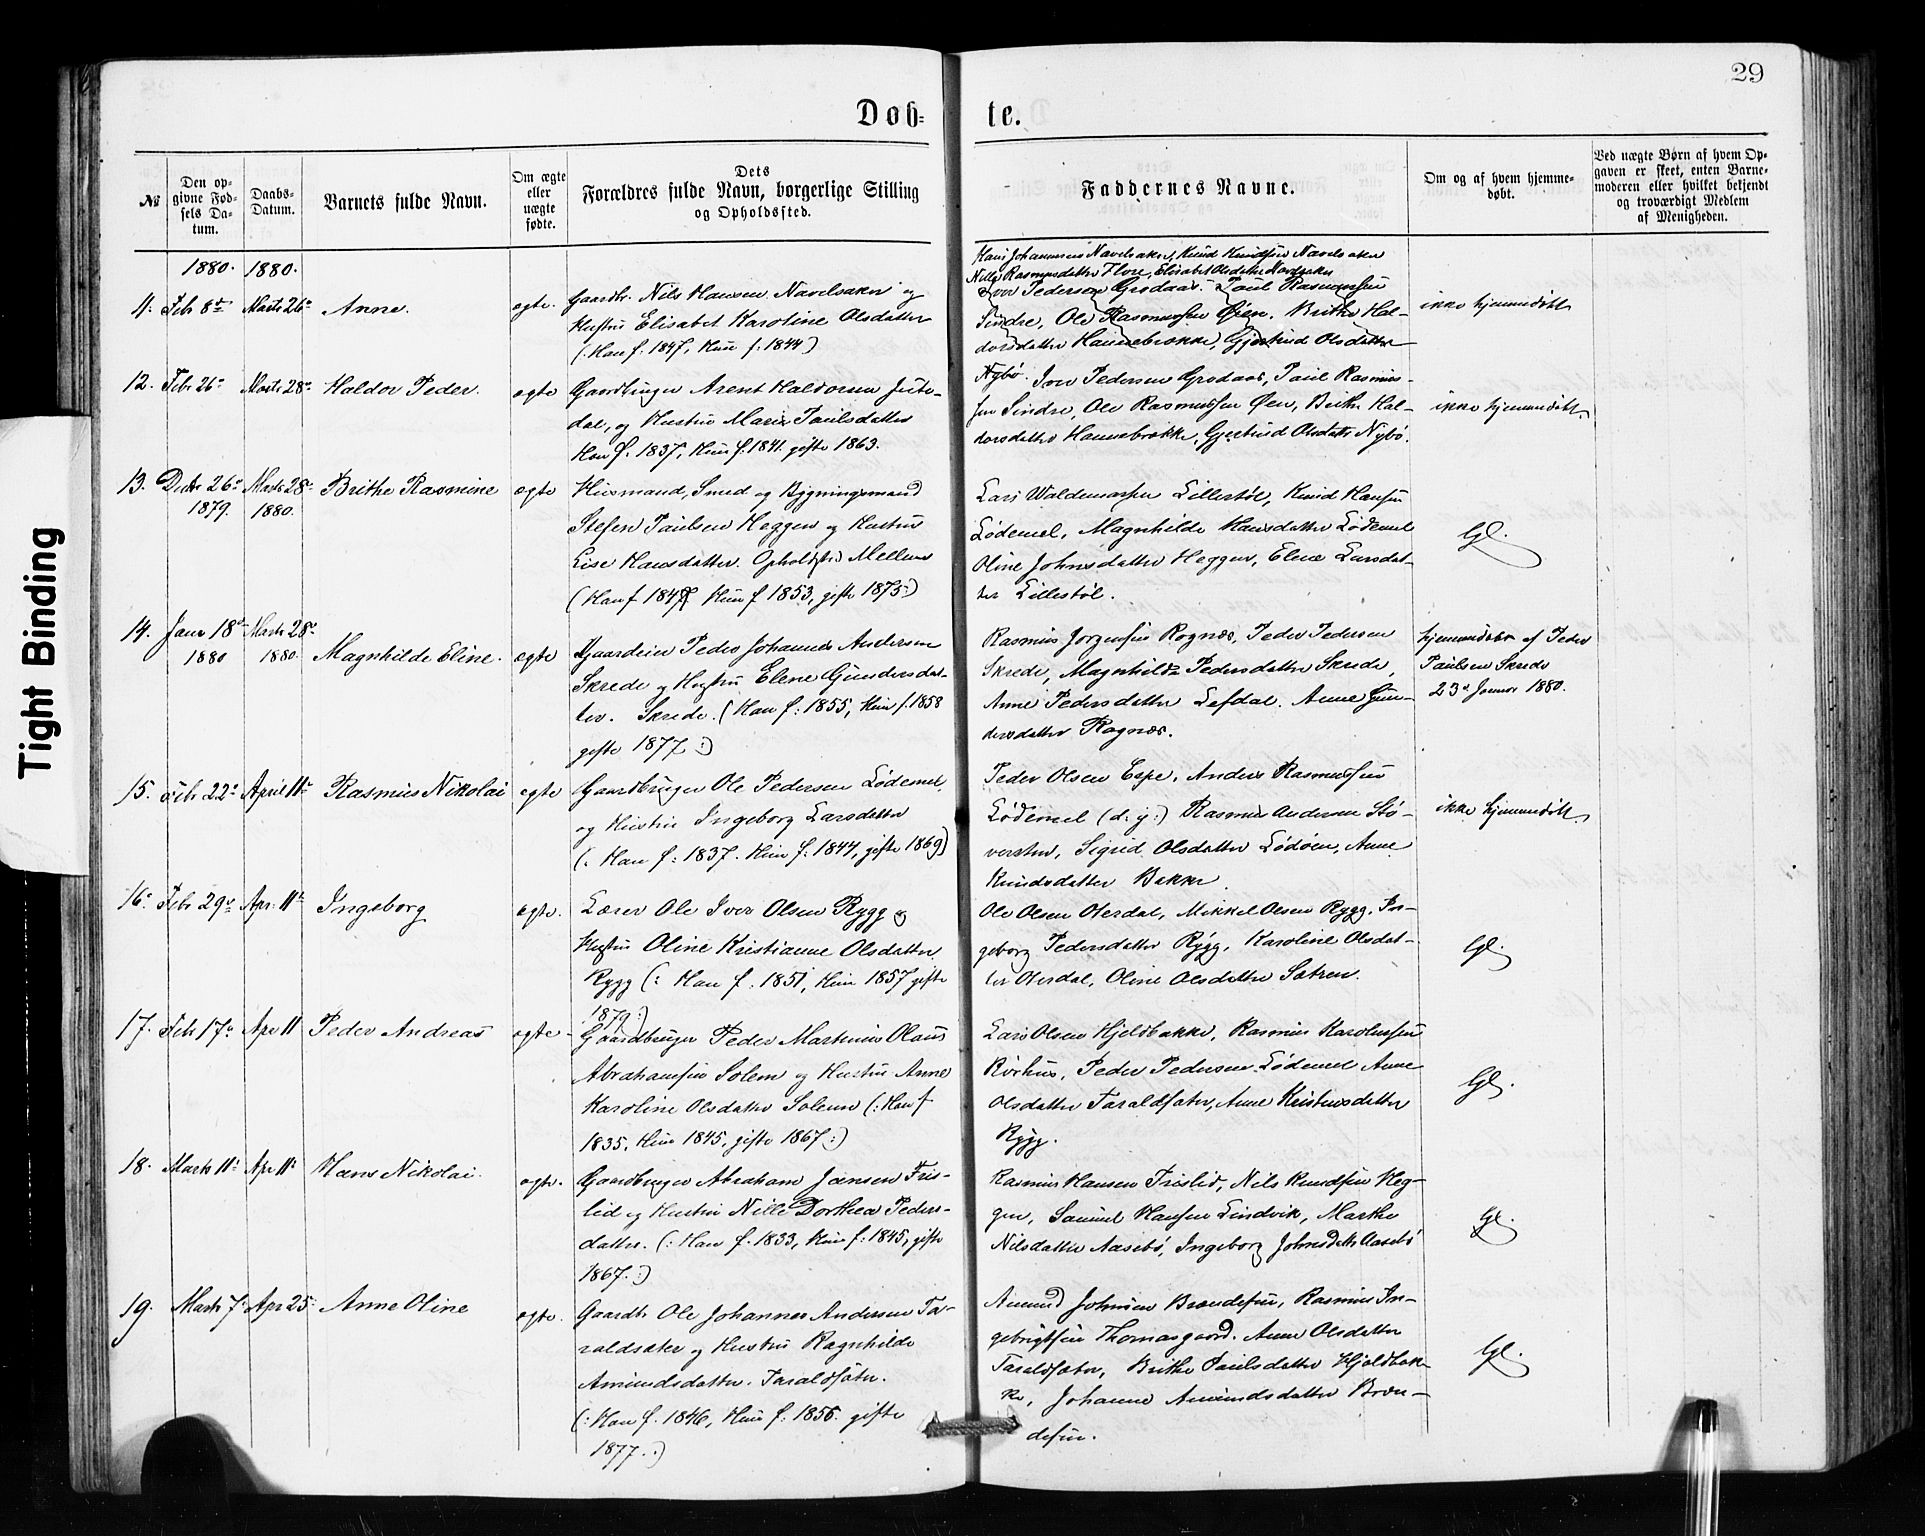 29
Døb=
te.
№
Den op-
givne Fød-
sels Da-
tum.
Daabs-
Datum.
Barnets fulde Navn.
Om ægte
eller
uægte
fødte.
Dets
Forældres fulde Navn, borgerlige Stilling
og Opholdssted.
Faddernes Navne.
Om og af hvem hjemme-
døbt.
Ved uægte Børn af hvem Op-
gaven er skeet, enten Barne-
moderen eller hvilket bekjendt
og troværdigt Medlem
af Menigheden.
1880. 1880.
11. Feb 8de Marts 26de Anne. ægte.
Gaardbr. Nils Hansen Navelsaker og
Hustru Elisabet Karoline Olsdatter
(: Han f. 1847, Hun f: 1844)
Hans Johannesen Navelsaker, Knud Knudsen Navelsaker
Nille Rasmusdatter Flore, Elisabet Olsdatter Navelsaker
Iver Pedersen Grodaas. Paul Rasmussen
Sindre, Ole Rasmussen Øien, Brithe Hal-
dorsdatter Hannebrække, Gjertrud Olsdatter
ikke hjemmedøbt
12. Febr 26de Marts 28de Haldor Peder. ægte
Gaardbruger Arent Haldorsen Jute-
dal, og Hustru Marie Paulsdatter
Han f. 1837, Hun f. 1841. gifte 1863.
Nybø. Iver Pedersen Grodaas, Paul Rasmus-
sen Sindre, Ole Rasmussen Øen, Brithe Hal-
dorsdatter Hannebrække, Gjertrud Olsdatter Nybø.
ikke hjemmedøbt.
13. Decbr 26de Marts 28de Brithe Rasmine ægte
1879. 1880.
Husmand, Smed og Bygningsmand
Stefen Paulsen Heggen og Hustru
Lise Hansdatter. Opholdssted Mellem
(Han f 1847 Hun f 1853, gifte 1875:)
Lars Waldemarsen Lillestøl, Knud Hansen
Lødemel, Magnhilde Hansdatter Lødemel
Oline Johnsdatter Heggen, Eline Larsdat-
ter Lillestøl.
Gl.
14. Janr 18de Marts 28de
1880 1880. Magnhilde Eline. ægte
Gaardeier Peder Johannes Andersen
Skrede og Hustru Elene Gundersdat-
ter. Skrede. (Han f: 1855, Hun f. 1858
gifte 1877:)
Rasmus Jørgensen Rognæs, Peder Pedersen
Skrede, Magnhilde Pedersdatter Skrede,
Anne Pedersdatter Lefdal. Anne Gun-
dersdatter Rognæs.
hjemmedøbt af Peder
Paulsen Skrede
23de Januar 1880.
15. Feb. 22de April 11te Rasmus Nikolai ægte
Gaardbruger Ole Pedersen Lødemel,
og Hustru Ingeborg Larsdatter
(: Han f: 1837. Hun f: 1844, gifte 1869)
Peder Olsen Espe, Anders Rasmussen
Lødemel (d: y:) Rasmus Andersen Stø-
versten, Sigrid Olsdatter Lødøen, Anne
Knudsdatter Bakke.
ikke hjemmedøbt.
16. Febr 29de Apr. 11te Ingeborg ægte.
Lærer Ole Iver Olsen Rygg og
Hustru Oline Kristianne Olsdatter
Rygg (: Han f. 1851, Hun 1857 gifte
1879:)
Ole Olsen Oterdal, Mikkel Olsen Rygg, In-
geborg Pedersdatter Rygg, Karoline Olsdat-
ter Oterdal, Oline Olsdatter Sætren.
Gl.
17. Feb 17de Apr 11 Peder Andreas ægte
Gaardbruger Peder Martinus Olaus
Abrahamsen Solem og Hustru Anne
Karoline Olsdatter Solem (: Han f
1835, Hun 1845, gifte 1867:)
Lars Olsen Hjeldbakke, Rasmus Karolussen
Rørhus, Peder Pedersen Lødemel Anne
Olsdatter Taraldsæter, Anne Kristensdatter
Rygg.
Gl.
18. Marts 11te Apr 11te Hans Nikolai. ægte.
Gaardbruger Abraham Jansen Fris-
lid og Hustru Nille Dorthea Peders-
datter. (: Han f. 1833, Hun f: 1845, gifte
1867.:)
Rasmus Hansen Frislid, Nils Knudsen Heg-
gen, Samuel Hansen Lindvik, Marthe
Nilsdatter Aasebø, Ingeborg Johnsdatter Aasebø
Gl.
19. Marts 7de Apr 25de Anne Oline ægte.
Gaardbr Ole Johannes Andersen Ta-
raldsæter og Hustru Ragnhilde
Amundsdatter. Taraldsæter.
(: Han f. 1846, Hun f. 1856. gifte
1877.:)
Amund Johnsen Brændeseen, Rasmus In-
gebrigtsen Thomasgaard. Anne Olsdatter
Taraldsæter, Brithe Paulsdatter Hjeldbak-
ke, Johanne Amundsdatter Bræn-
deseen.
Gl.
Tight Binding